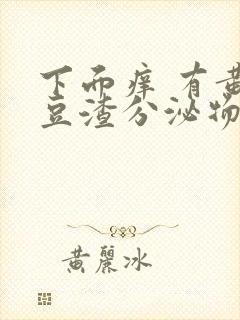 下面痒 有黄
豆渣分泌物
黄麗冰